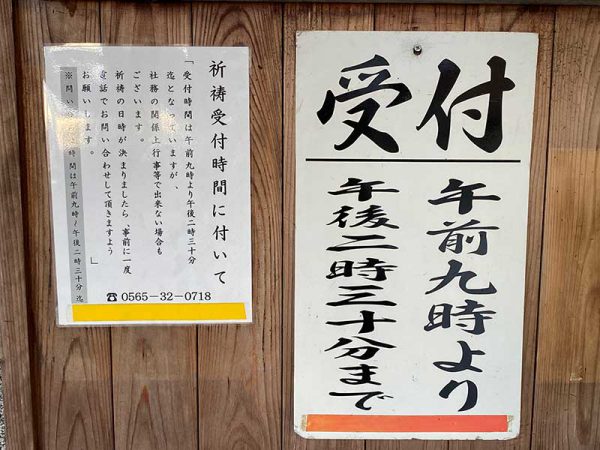 祈祷受付時間に付いて
「受付時間は午前九時より午後二時三十分
迄となっていますが、
社務の関係上行事等で出来ない場合も
ございます。
祈祷の日時が決まりましたら、事前に一度
電話でお問い合わせして頂きますよう
お願いします。」
※問い 時間は午前九時〜午後二時三十分 迄
☎ 0565-32-0718
受付
午前九時より
午後二時三十分まで